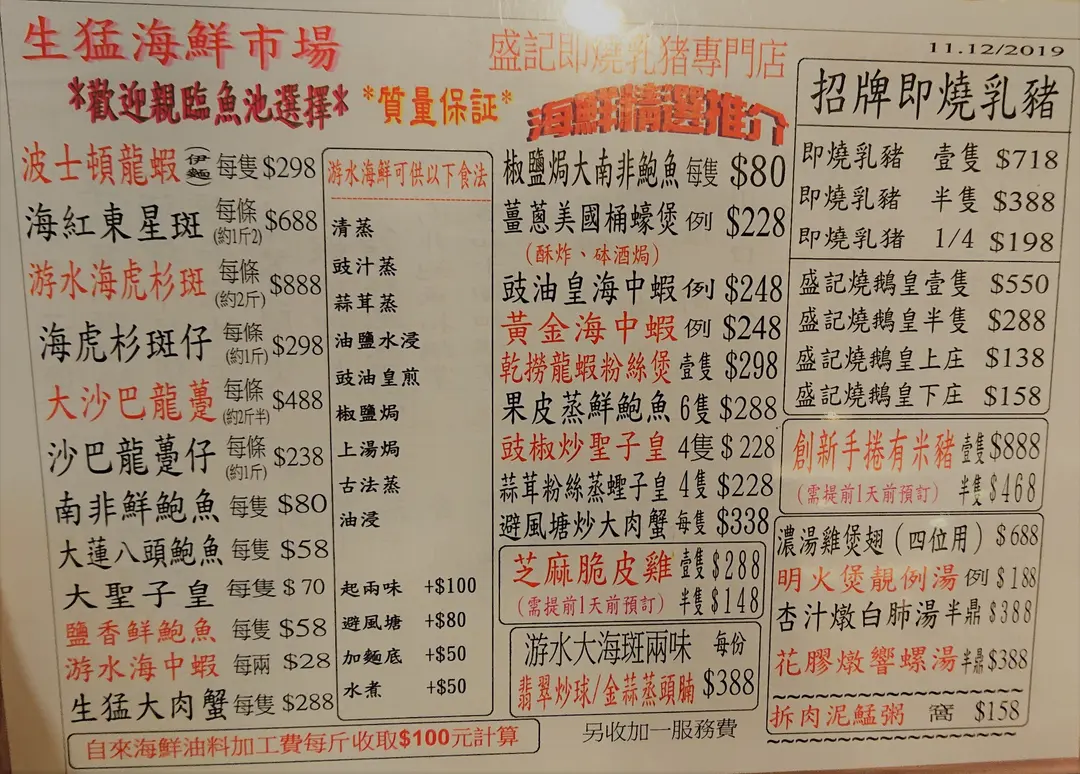 生猛海鮮市場
*歡迎親臨魚池選擇* *質量保証*
波士頓龍蝦(伊麵)每隻$298
海紅東星斑 每條(約1斤2)$688
游水海虎杉斑 每條(約2斤)$888
海虎杉斑仔 每條(約1斤)$298
大沙巴龍躉 每條(約2斤半)$488
沙巴龍躉仔 每條(約1斤)$238
南非鮮鮑魚 每隻 $80
大蓮八頭鮑魚 每隻 $58
大聖子皇 每隻 $70
鹽香鮮鮑魚 每隻 $58
游水海中蝦 每兩 $28
生猛大肉蟹 每隻 $288
自來海鮮油料加工費每斤收取$100元計算
游水海鮮可供以下食法
清蒸
豉汁蒸
蒜茸蒸
油鹽水浸
豉油皇煎
椒鹽焗
上湯焗
古法蒸
油浸
起兩味 +$100
避風塘 +$80
加麵底 +$50
水煮 +$50
盛記即燒乳猪專門店
海鮮精選推介
椒鹽焗大南非鮑魚 每隻 $80
薑蔥美國桶蠔煲 例 $228
(酥炸、砵酒焗)
豉油皇海中蝦 例 $248
黃金海中蝦 例 $248
乾撈龍蝦粉絲煲 壹隻 $298
果皮蒸鮮鮑魚 6隻 $288
豉椒炒聖子皇 4隻 $228
蒜茸粉絲蒸蟶子皇 4隻 $228
避風塘炒大肉蟹 每隻 $338
芝麻脆皮雞 壹隻 $288
(需提前1天前預訂) 半隻 $148
游水大海斑兩味 每份
翡翠炒球/金蒜蒸頭腩 $388
另收加一服務費
11.12/2019
招牌即燒乳豬
即燒乳豬 壹隻 $718
即燒乳豬 半隻 $388
即燒乳猪 1/4 $198
盛記燒鵝皇壹隻 $550
盛記燒鵝皇半隻 $288
盛記燒鵝皇上庄 $138
盛記燒鵝皇下庄 $158
創新手捲有米豬 壹隻 $888
(需提前1天前預訂) 半隻 $468
濃湯雞煲翅(四位用) $688
明火煲靚例湯 例 $188
杏汁燉白肺湯 半鼎 $388
花膠燉響螺湯 半鼎 $388
拆肉泥鯭粥 窩 $158